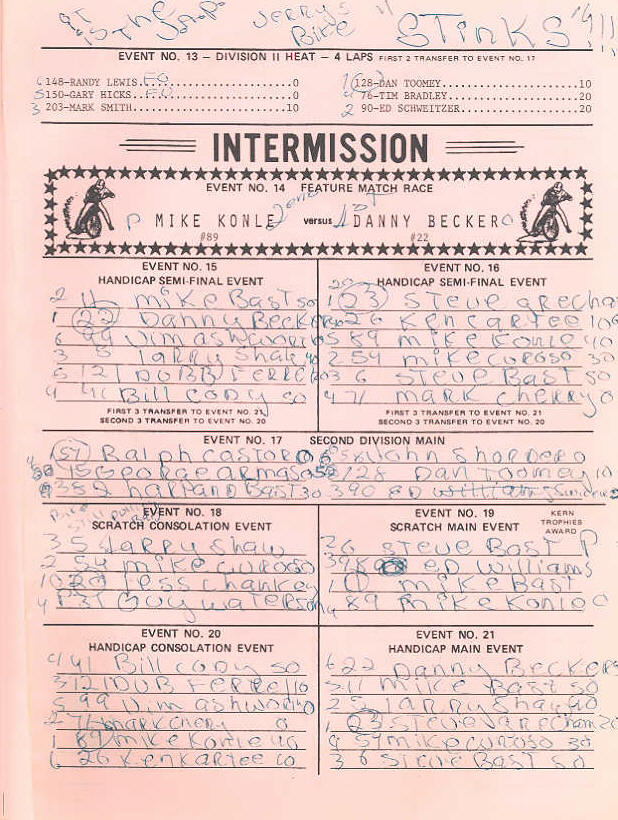 JERRY'S Bike STiNKS!!!!
EVENT NO. 13 – DIVISION II HEAT – 4 LAPS FIRST 2 TRANSFER TO EVENT NO. 17
6 148-RANDY LEWIS F.G...................0 128-DAN TOOMEY....................10
5 150-GARY HICKS...................0 76-TIM BRADLEY....................20
3 203-MARK SMITH...................10 2 90-ED SCHWEITZER..................20
INTERMISSION
EVENT NO. 14 FEATURE MATCH RACE
MIKE KONLE versus 1st DANNY BECKER
#89 #22
EVENT NO. 15
HANDICAP SEMI-FINAL EVENT
2 11 mike Bast 50
1 22 Danny Becker
6 99 Jim ashworth
3 5 larry Shaw 40
5 121 DUBB FERREll
4 41 Bill CODY 50
FIRST 3 TRANSFER TO EVENT NO. 21
SECOND 3 TRANSFER TO EVENT NO. 20
EVENT NO. 16
HANDICAP SEMI-FINAL EVENT
1 23 STEVE Grecham
26 Ken cartee
5 89 mike Konle 40
2 59 mike curoso 30
3 6 STeve BAST 50
4 71 mark CHERRY 0
FIRST 3 TRANSFER TO EVENT NO. 21
SECOND 3 TRANSFER TO EVENT NO. 20
EVENT NO. 17 SECOND DIVISION MAIN
57 Ralph CASTORO John Shordero
GEORGE armas 128 Dan Toomey 10
holland BAST 30 390 ED williams
EVENT NO. 18
SCRATCH CONSOLATION EVENT
3 5 larry Shaw
2 59 mike curoso
Jess Chankey
4 Guy waterson
EVENT NO. 19
SCRATCH MAIN EVENT
KERN
TROPHIES
AWARD
STeve BAST
ED williams
1 11 mike BAST
4 89 mike Konle 0
EVENT NO. 20
HANDICAP CONSOLATION EVENT
4 41 Bill CODY 50
3 121 DUB FERREll 10
5 99 Jim ashworth
2 71 mark cherry 0
1 89 mike Konle 40
6 26 Ken Kartee
EVENT NO. 21
HANDICAP MAIN EVENT
6 22 Danny Becker
11 mike BAST 50
larry Shaw
1 23 STeve Grecham
59 mike curoso 30
3 6 STeve BAST 50